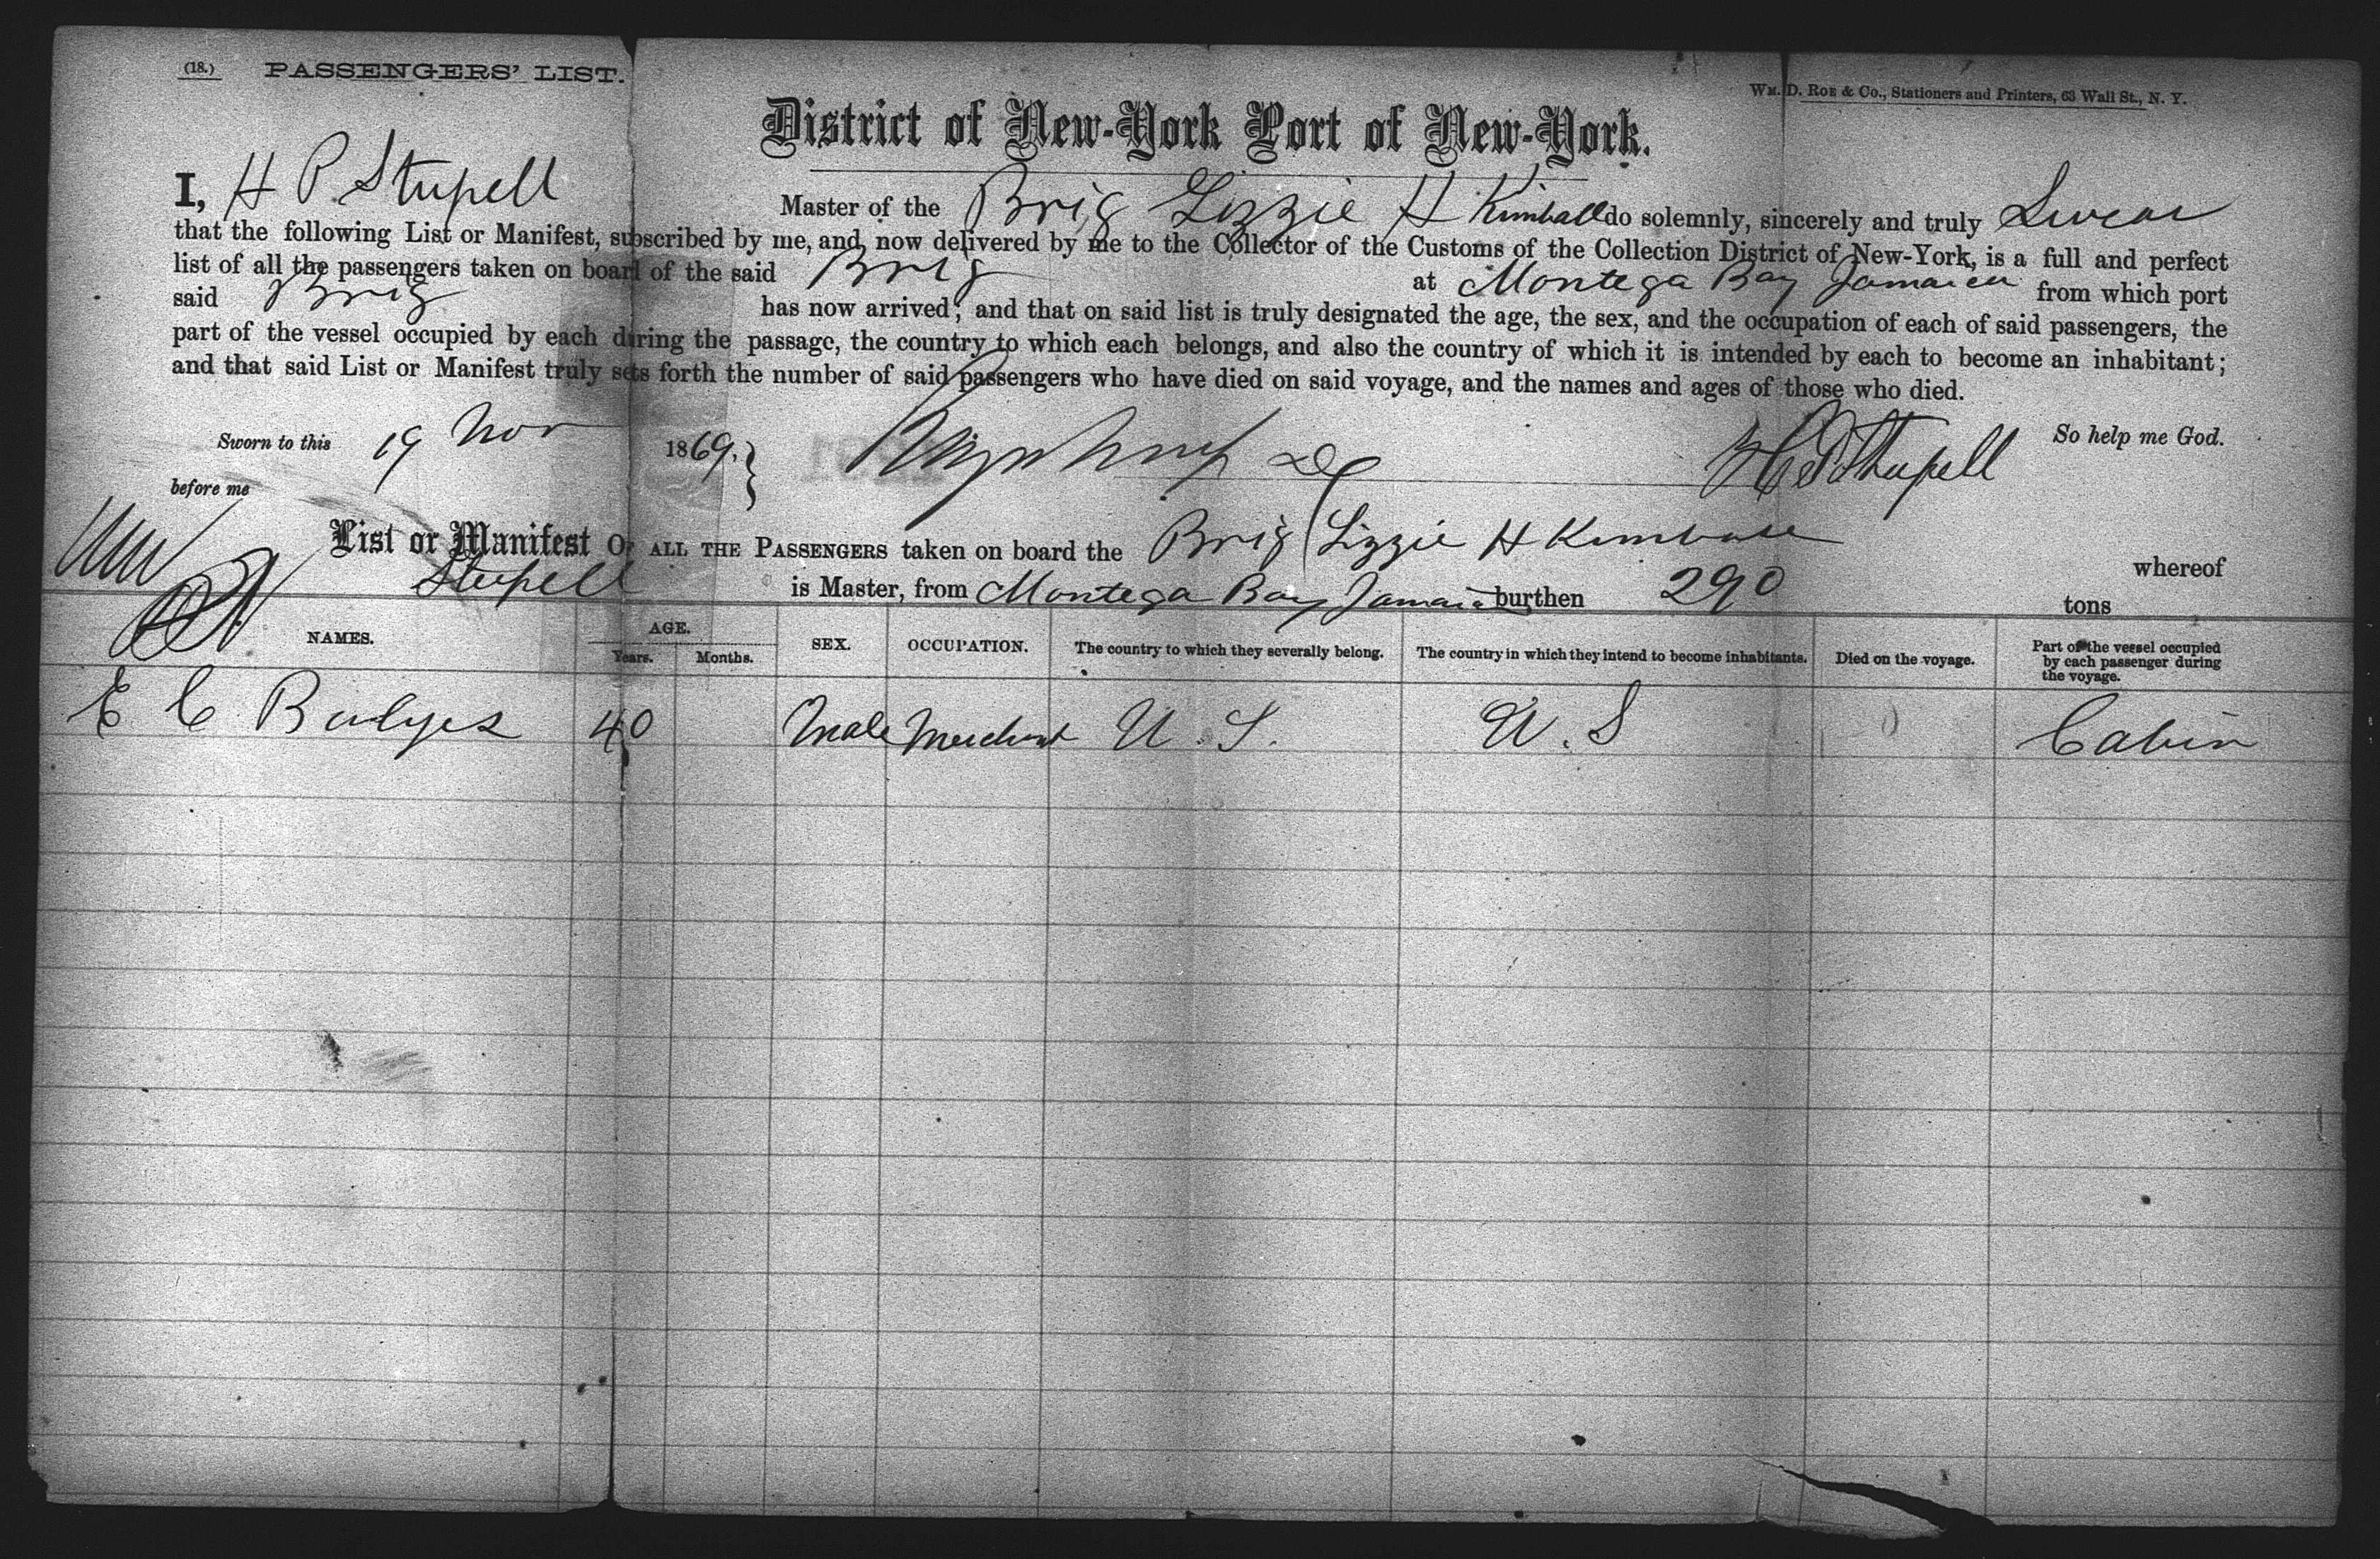 (18.) PASSENGERS' LIST.
WM. D. ROE & Co., Stationers and Printers, 63 Wall St., N. Y.
District of New-York Port of New-York.
I, H P Stupell Master of the Brig Lizzie H Kimball do solemnly, sincerely and truly Swear
that the following List or Manifest, subscribed by me, and now delivered by me to the Collector of the Customs of the Collection District of New-York, is a full and perfect
list of all the passengers taken on board of the said Brig at Montega Bay Jamaica from which port
said Brig has now arrived; and that on said list is truly designated the age, the sex, and the occupation of each of said passengers, the
part of the vessel occupied by each during the passage, the country to which each belongs, and also the country of which it is intended by each to become an inhabitant;
and that said List or Manifest truly sets forth the number of said passengers who have died on said voyage, and the names and ages of those who died.
Sworn to this 19 Nov 1869. H P Stupell So help me God.
before me
List or Manifest OF ALL THE PASSENGERS taken on board the Brig Lizzie H Kimball whereof
Stupell is Master, from Montega Bay Jamaica burthen 290 tons
NAMES. AGE. Years. Months. SEX. OCCUPATION. The country to which they severally belong. The country in which they intend to become inhabitants. Died on the voyage. Part of the vessel occupied by each passenger during the voyage.
E C 40 Male Merchant U. S. U. S Cabin